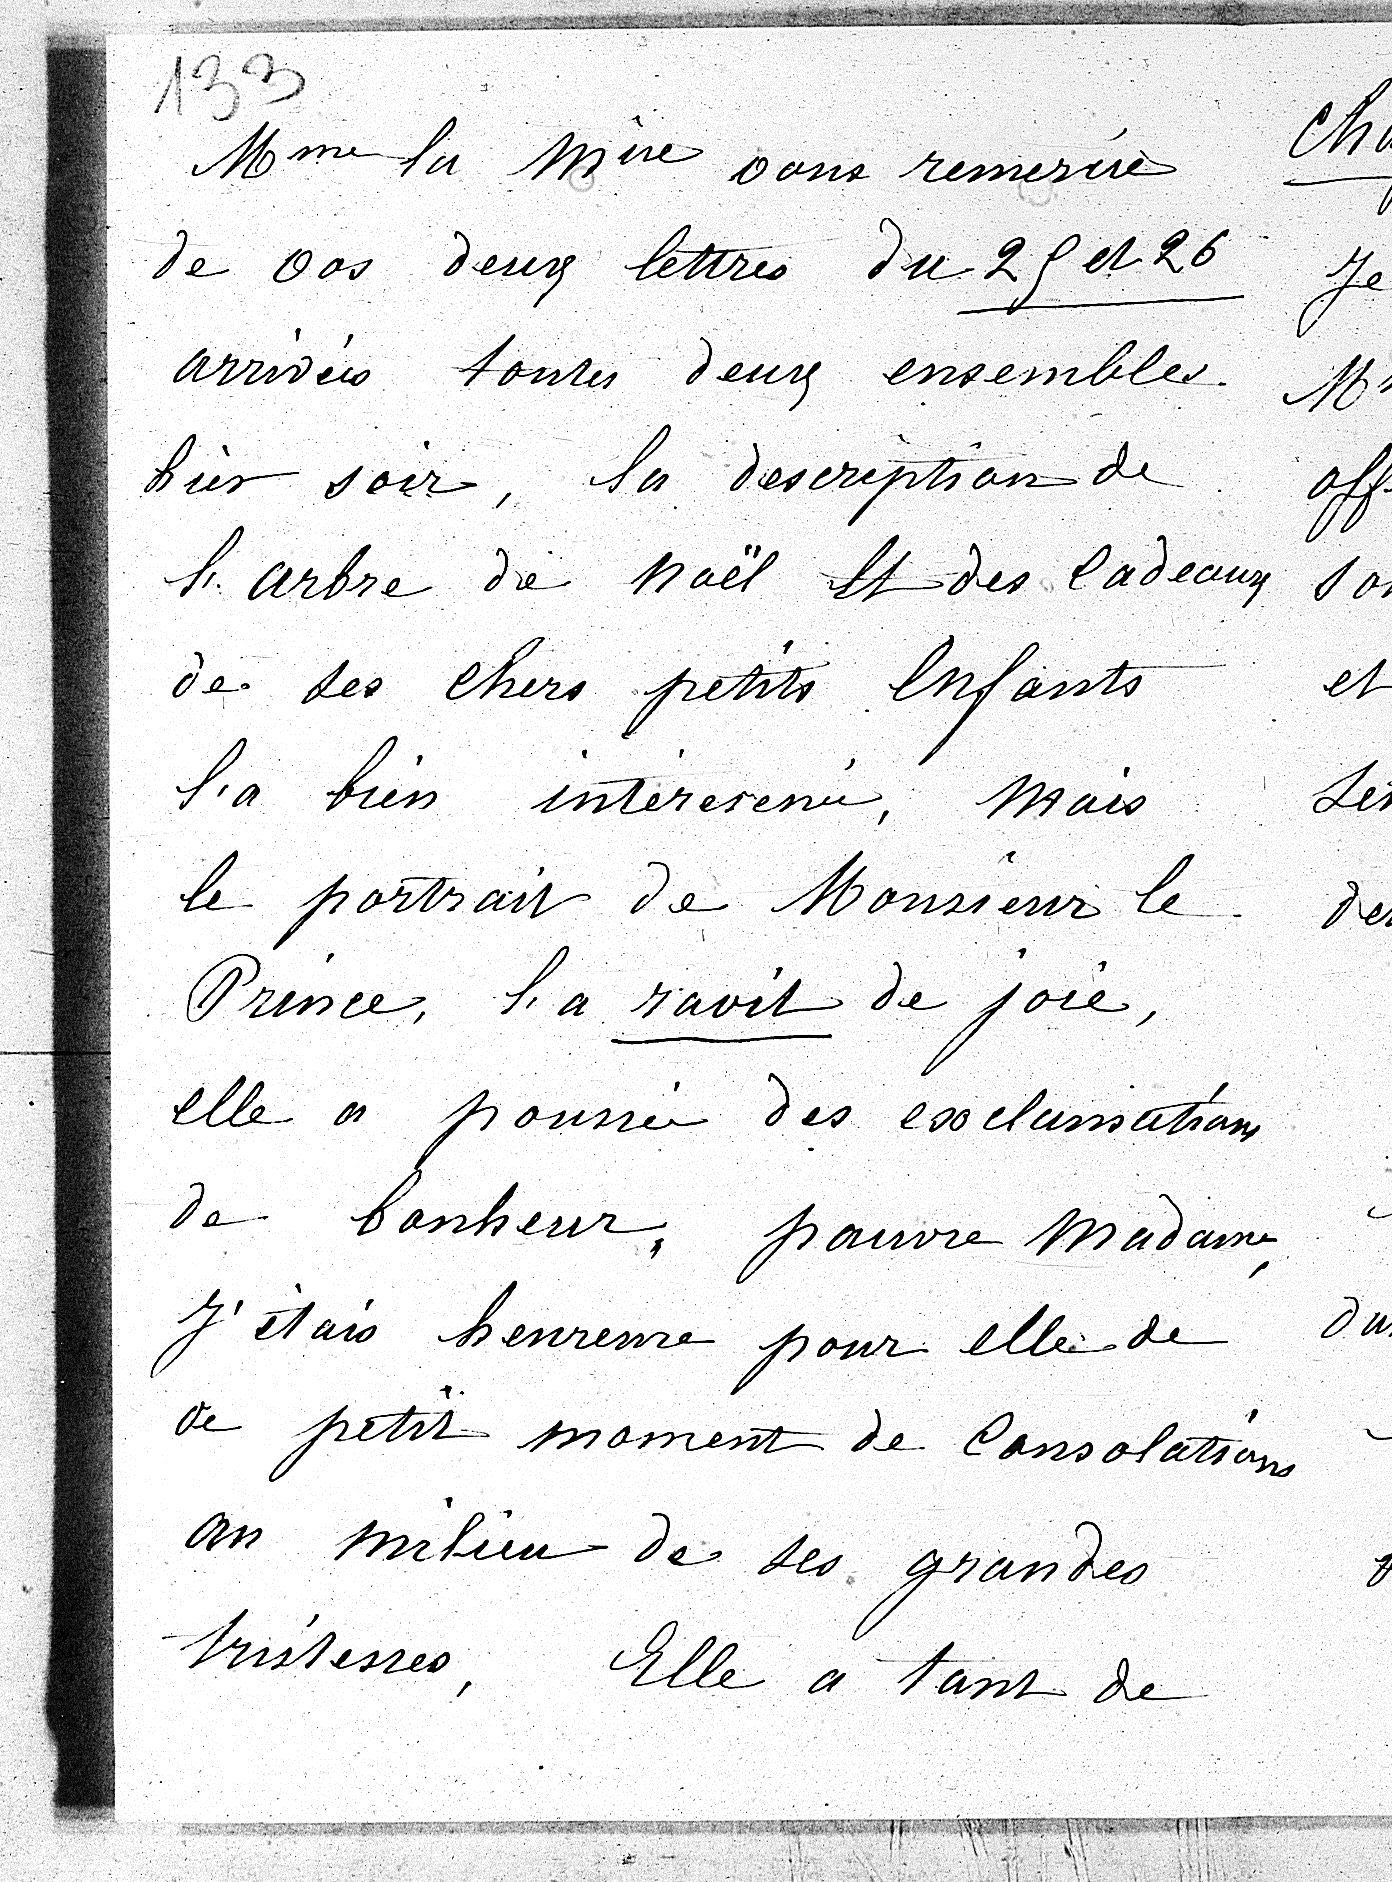 133
Mme la Mère vous remercie
de vos deux lettres du 25 et 26
arrivées toutes deux ensembles
hier soir, la description de
l'arbre de Noël Et des Cadeaux
de ses chers petits Enfants
l'a bien intéressenée, Mais
le portrait de Monsieur le
Prince, l'a ravit de joie,
elle a poussée des exclamations
de bonheur, pauvre Madame,
J'étais heureuse pour elle de
ce petit moment de Consolations
au milieu de ses grandes
tristesses, Elle a tant de
Je
et